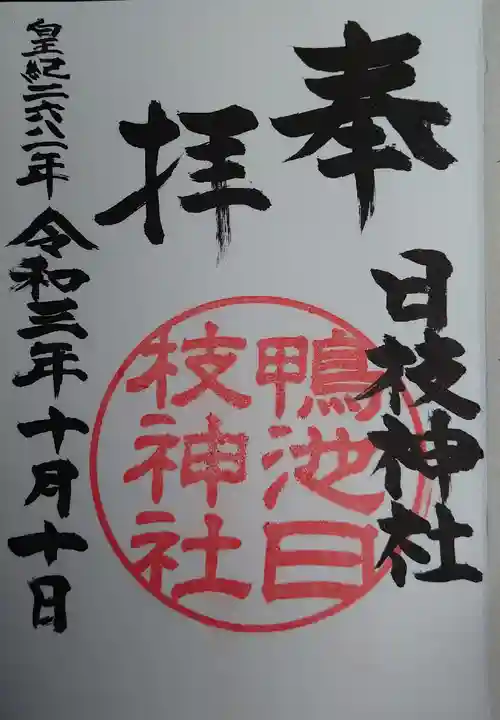 奉拝
日枝神社
鴨池日
枝神社
皇紀二六八一年 令和三年十月十日